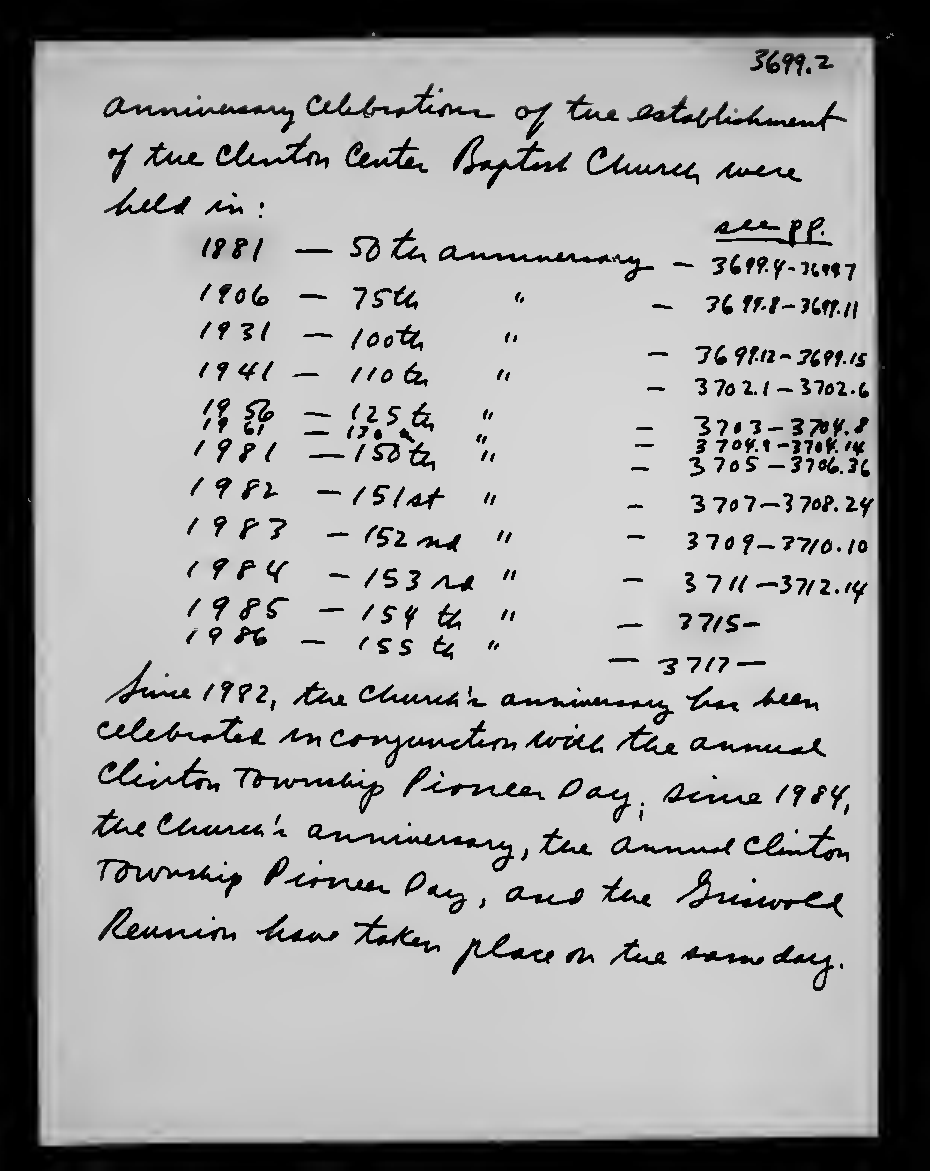 3699.2
Anniversary Celebrations of the establishment
of the Clinton Center Baptist Church were
held in:
see pp.
1881 — 50th anniversary — 3699.4-3699.7
1906 — 75th " — 3699.8-3699.11
1931 — 100th " — 3699.12-3699.15
1941 — 110th " — 3702.1-3702.6
1956 — 125th " — 3703-3704.8
1961 — 130th " — 3704.9-3704.14
1981 — 150th " — 3705-3706.36
1982 — 151st " — 3707-3708.24
1983 — 152nd " — 3709-3710.10
1984 — 153rd " — 3711-3712.14
1985 — 154th " — 3715-
1986 — 155th " — 3717—
Since 1982, the Church's anniversary has been
celebrated in conjunction with the annual
Clinton Township Pioneer Day; since 1984,
the Church's anniversary, the annual Clinton
Township Pioneer Day, and the Griswold
Reunion have taken place on the same day.